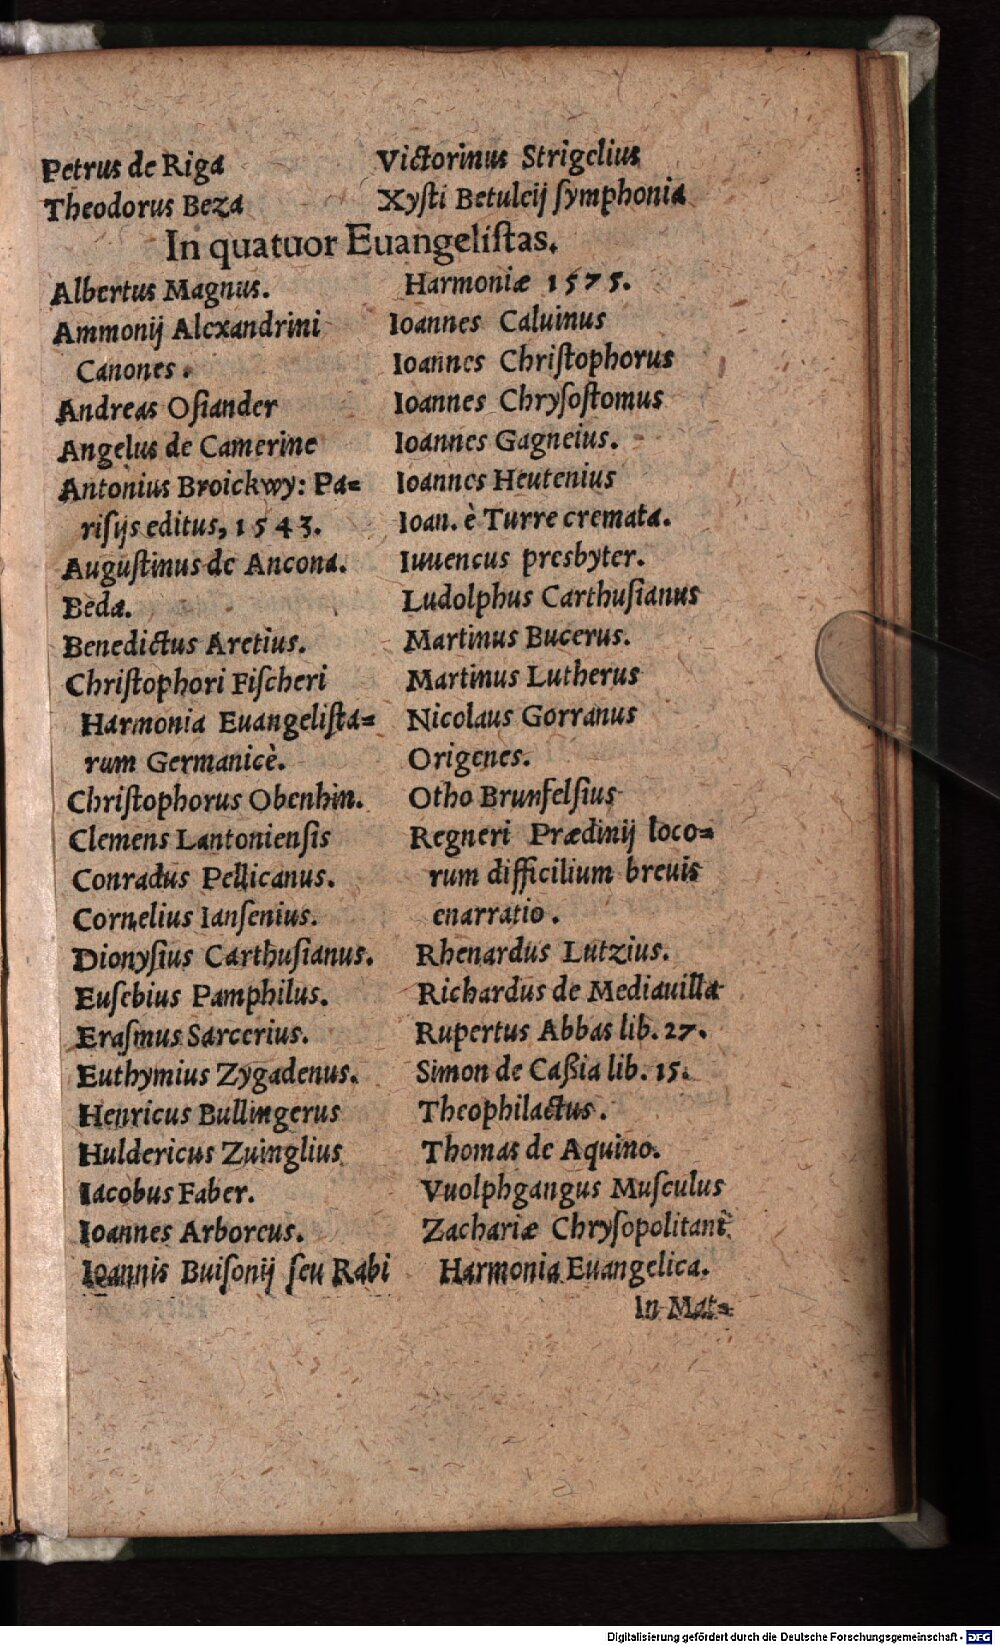 Petrus de Riga
Theodorus Beza
Victorinus Strigelius
Xyſti Betuleij ſymphonia
In quatuor Euangeliſtas.
Albertus Magnus.
Ammonij Alexandrini
Canones.
Andreas Oſiander
Angelus de Camerine
Antonius Broickwy: Pa=
riſijs editus, 1543.
Auguſtinus de Ancona.
Beda.
Benedictus Aretius.
Chriſtophori Fiſcheri
Harmonia Euangeliſta=
rum Germanicè.
Chriſtophorus Obenhin.
Clemens Lantonienſis
Conradus Pellicanus.
Cornelius Ianſenius.
Dionyſius Carthuſianus.
Euſebius Pamphilus.
Eraſmus Sarcerius.
Euthymius Zygadenus.
Henricus Bullingerus
Huldericus Zuinglius
Iacobus Faber.
Ioannes Arboreus.
Ioannis Buiſonij ſeu Rabi
Harmoniæ 1575.
Ioannes Caluinus
Ioannes Chriſtophorus
Ioannes Chryſoſtomus
Ioannes Gagneius.
Ioannes Heutenius
Ioan. è Turre cremata.
Iuuencus presbyter.
Ludolphus Carthuſianus
Martinus Bucerus.
Martinus Lutherus
Nicolaus Gorranus
Origenes.
Otho Brunfelſius
Regneri Prædinij loco=
rum difficilium breuis
enarratio.
Rhenardus Lutzius.
Richardus de Mediauilla
Rupertus Abbas lib. 27.
Simon de Caßia lib. 15.
Theophilactus.
Thomas de Aquino.
Vuolphgangus Muſculus
Zachariæ Chryſopolitani
Harmonia Euangelica.
In Mat=
Digitalisierung gefördert durch die Deutsche Forschungsgemeinschaft - DFG